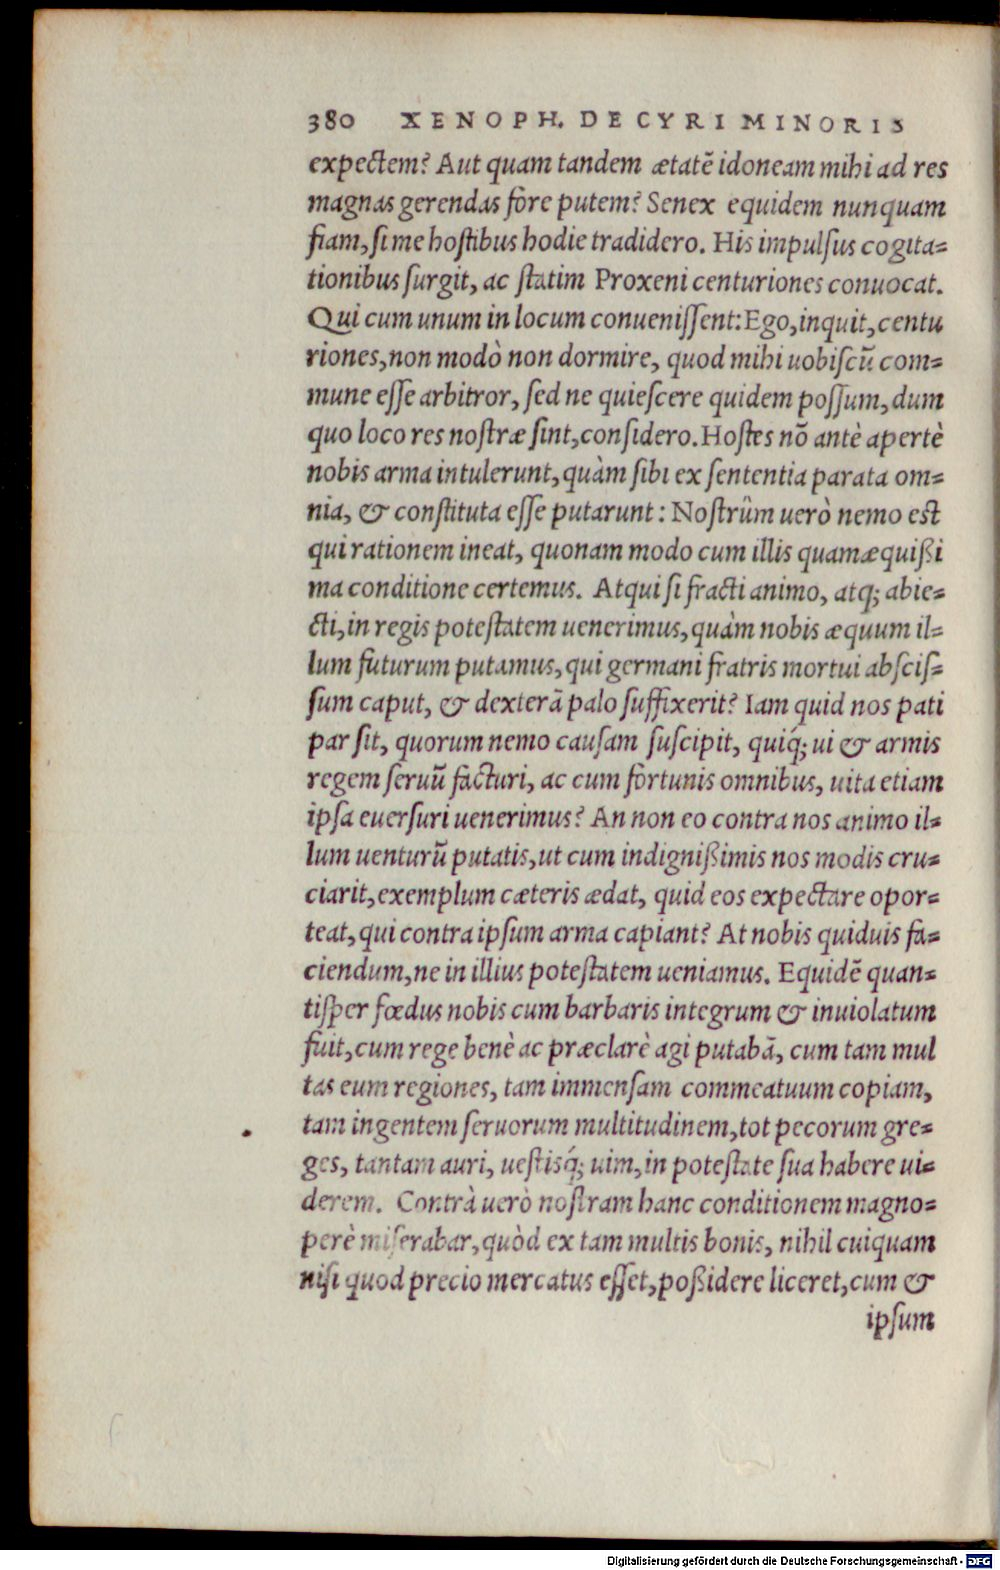 380 XENOPH. DE CYRI MINORIS
expectem? Aut quam tandem ætatē idoneam mihi ad res
magnas gerendas fore putem? Senex equidem nunquam
fiam, ſi me hoſtibus hodie tradidero. His impulſus cogita=
tionibus ſurgit, ac ſtatim Proxeni centuriones conuocat.
Qui cum unum in locum conueniſſent: Ego, inquit, centu
riones, non modò non dormire, quod mihi uobiſcū com=
mune eſſe arbitror, ſed ne quieſcere quidem poſſum, dum
quo loco res noſtræ ſint, conſidero. Hoſtes nō antè apertè
nobis arma intulerunt, quàm ſibi ex ſententia parata om=
nia, & conſtituta eſſe putarunt: Noſtrûm uerò nemo est
qui rationem ineat, quonam modo cum illis quamæquißi
ma conditione certemus. Atqui ſi fracti animo, atq; abie=
cti, in regis poteſtatem uenerimus, quàm nobis æquum il=
lum futurum putamus, qui germani fratris mortui abſciſ=
ſum caput, & dexterā palo ſuffixerit? Iam quid nos pati
par ſit, quorum nemo cauſam ſuſcipit, quiq́; ui & armis
regem ſeruū facturi, ac cum fortunis omnibus, uita etiam
ipſa euerſuri uenerimus? An non eo contra nos animo il=
lum uenturū putatis, ut cum indignißimis nos modis cru=
ciarit, exemplum cæteris ædat, quid eos expectare opor=
teat, qui contra ipſum arma capiant? At nobis quiduis fa=
ciendum, ne in illius poteſtatem ueniamus. Equidē quan=
tiſper fœdus nobis cum barbaris integrum & inuiolatum
fuit, cum rege benè ac præclarè agi putabā, cum tam mul
tas eum regiones, tam immenſam commeatuum copiam,
tam ingentem ſeruorum multitudinem, tot pecorum gre=
ges, tantam auri, ueſtisq́; uim, in poteſtate ſua habere ui=
derem. Contrà uerò noſtram hanc conditionem magno=
perè miſerabar, quòd ex tam multis bonis, nihil cuiquam
niſi quod precio mercatus eſſet, poßidere liceret, cum &
ipſum
Digitalisierung gefördert durch die Deutsche Forschungsgemeinschaft - DFG